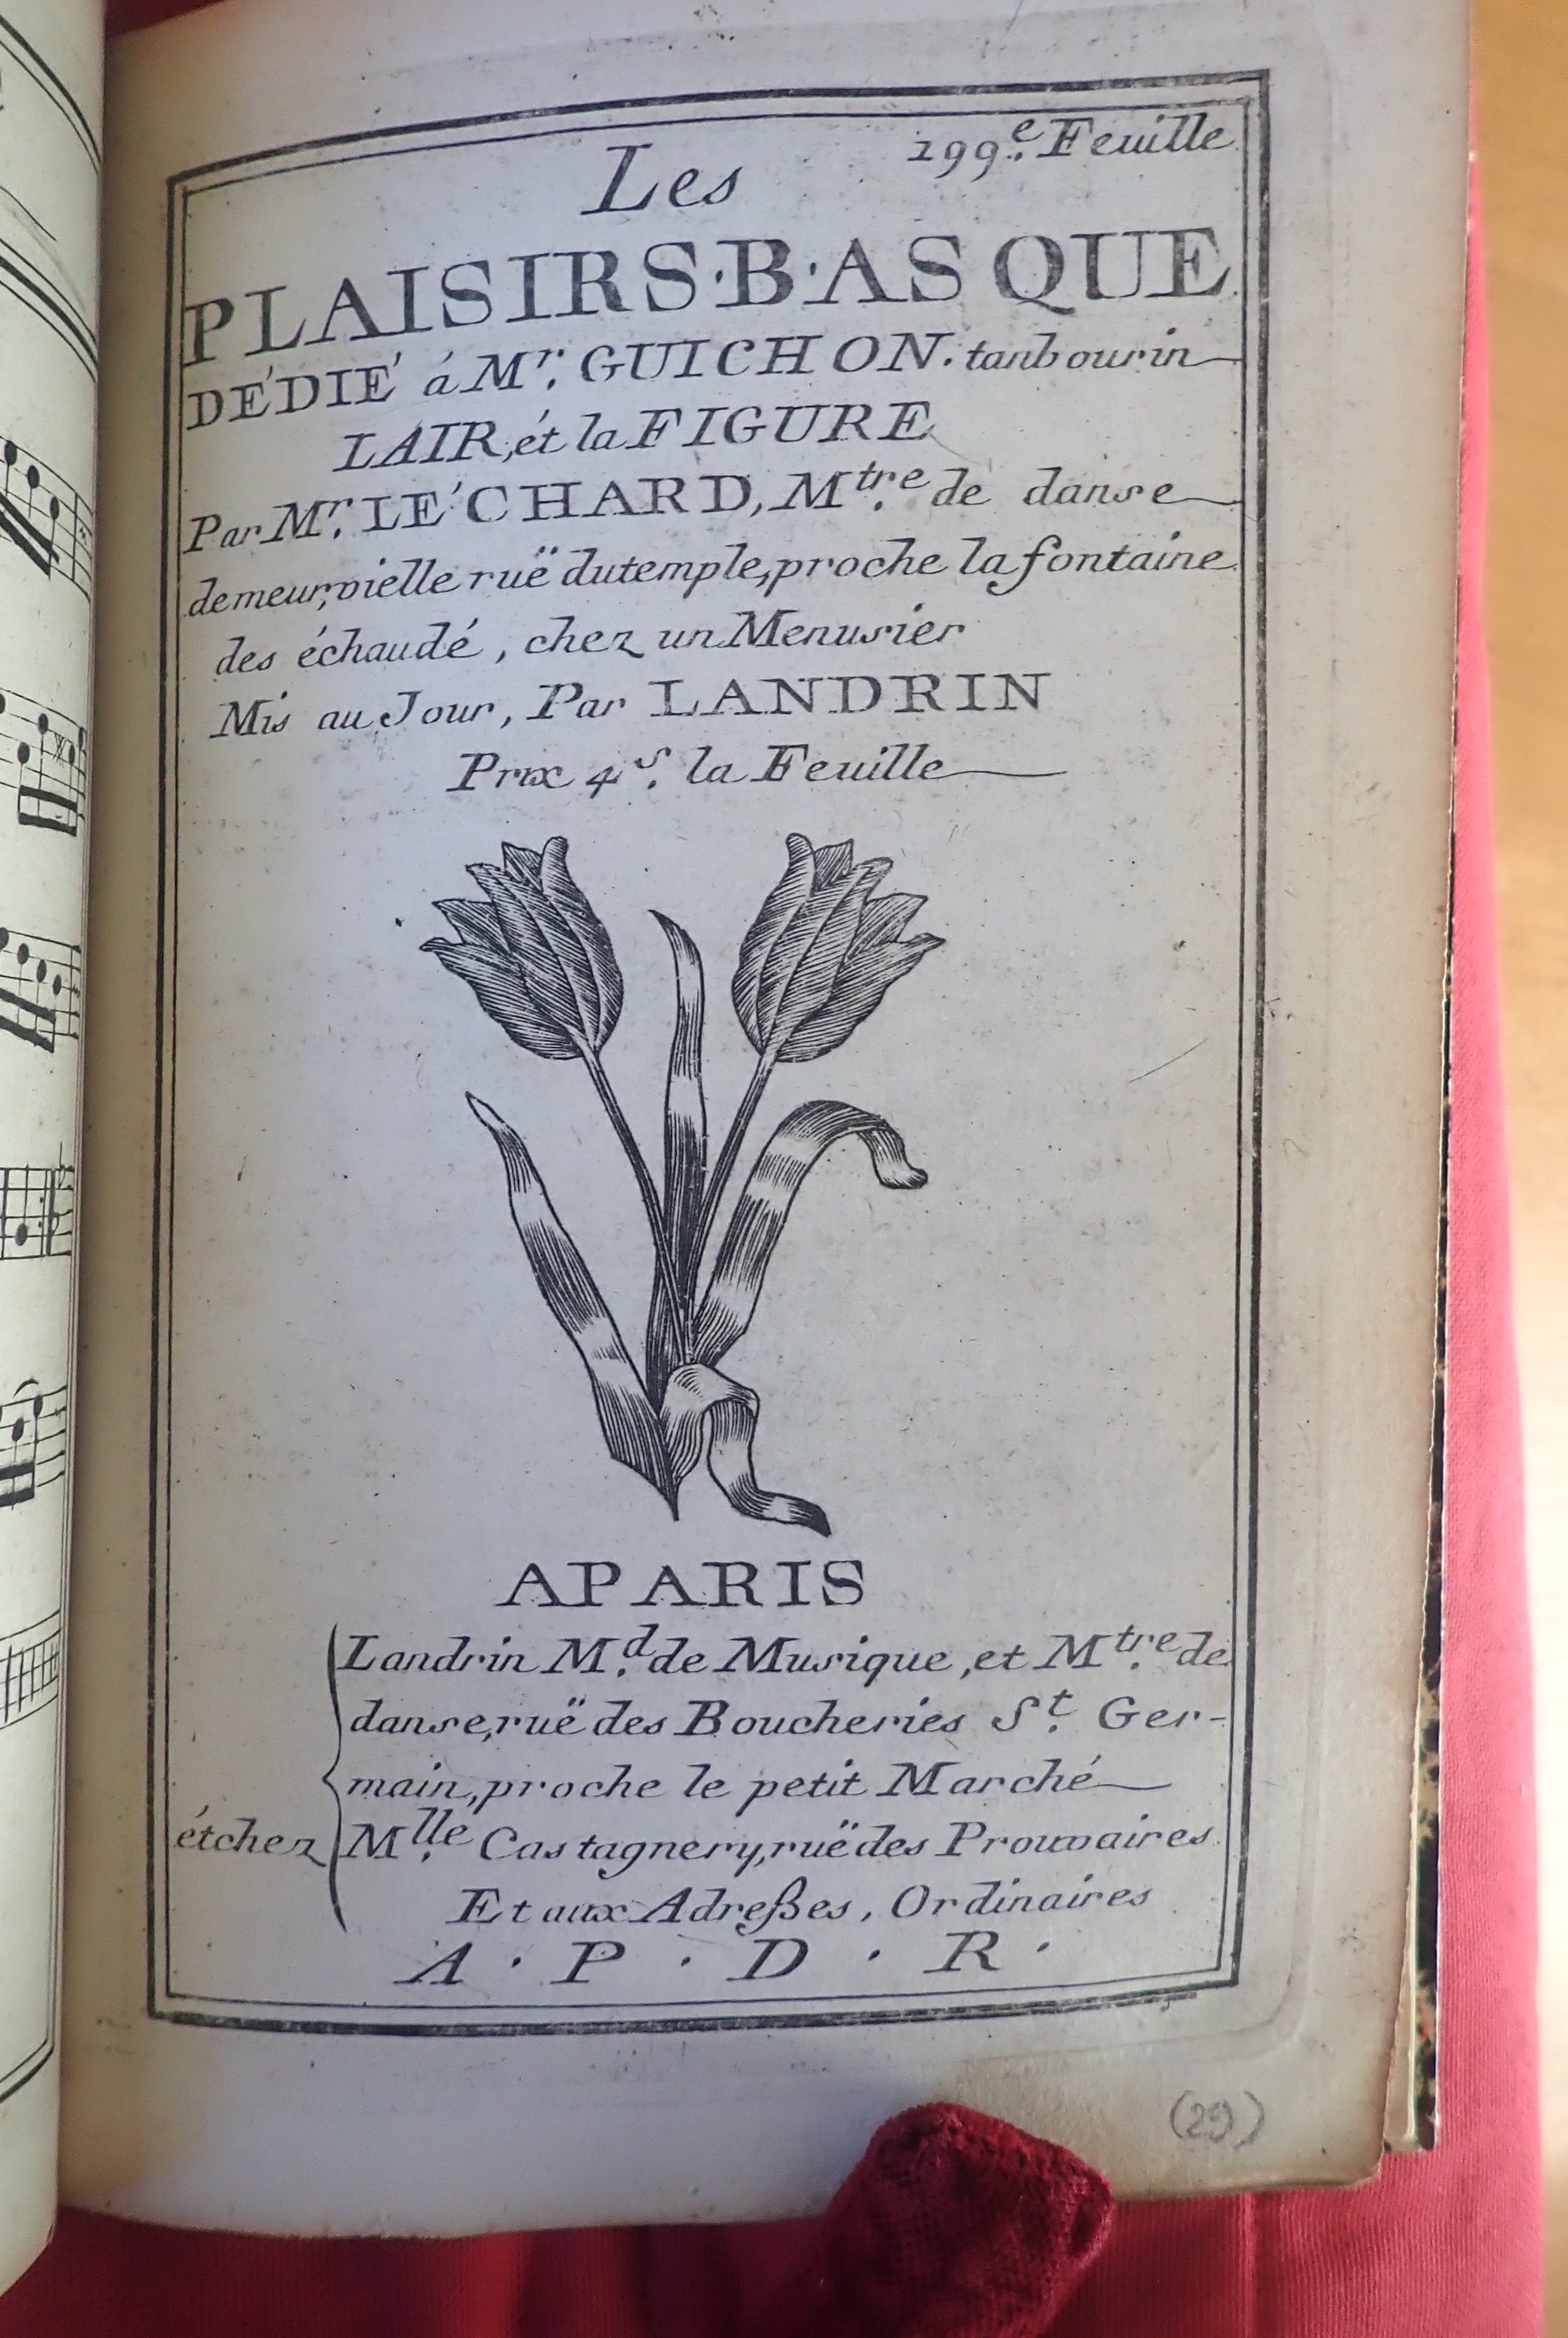 199.e Feuille
Les
PLAISIRS·B·ASQUE
DÉDIÉ á Mr. GUICHON. tanbourin
LAIR, ét la FIGURE
Par Mr. LÉCHARD, Mtre. de danse
demeur, vielle ruë dutemple, proche la fontaine
des échaudé, chez un Menusier
Mis au Jour, Par LANDRIN
Prix 4s. la Feuille
APARIS
Landrin Md. de Musique, et Mtre. de
danse, ruë des Boucheries St. Ger-
main, proche le petit Marché
étchez Mlle. Castagnery, ruë des Prouvaires
Et aux Adreßes, Ordinaires
A · P · D · R ·
(29)